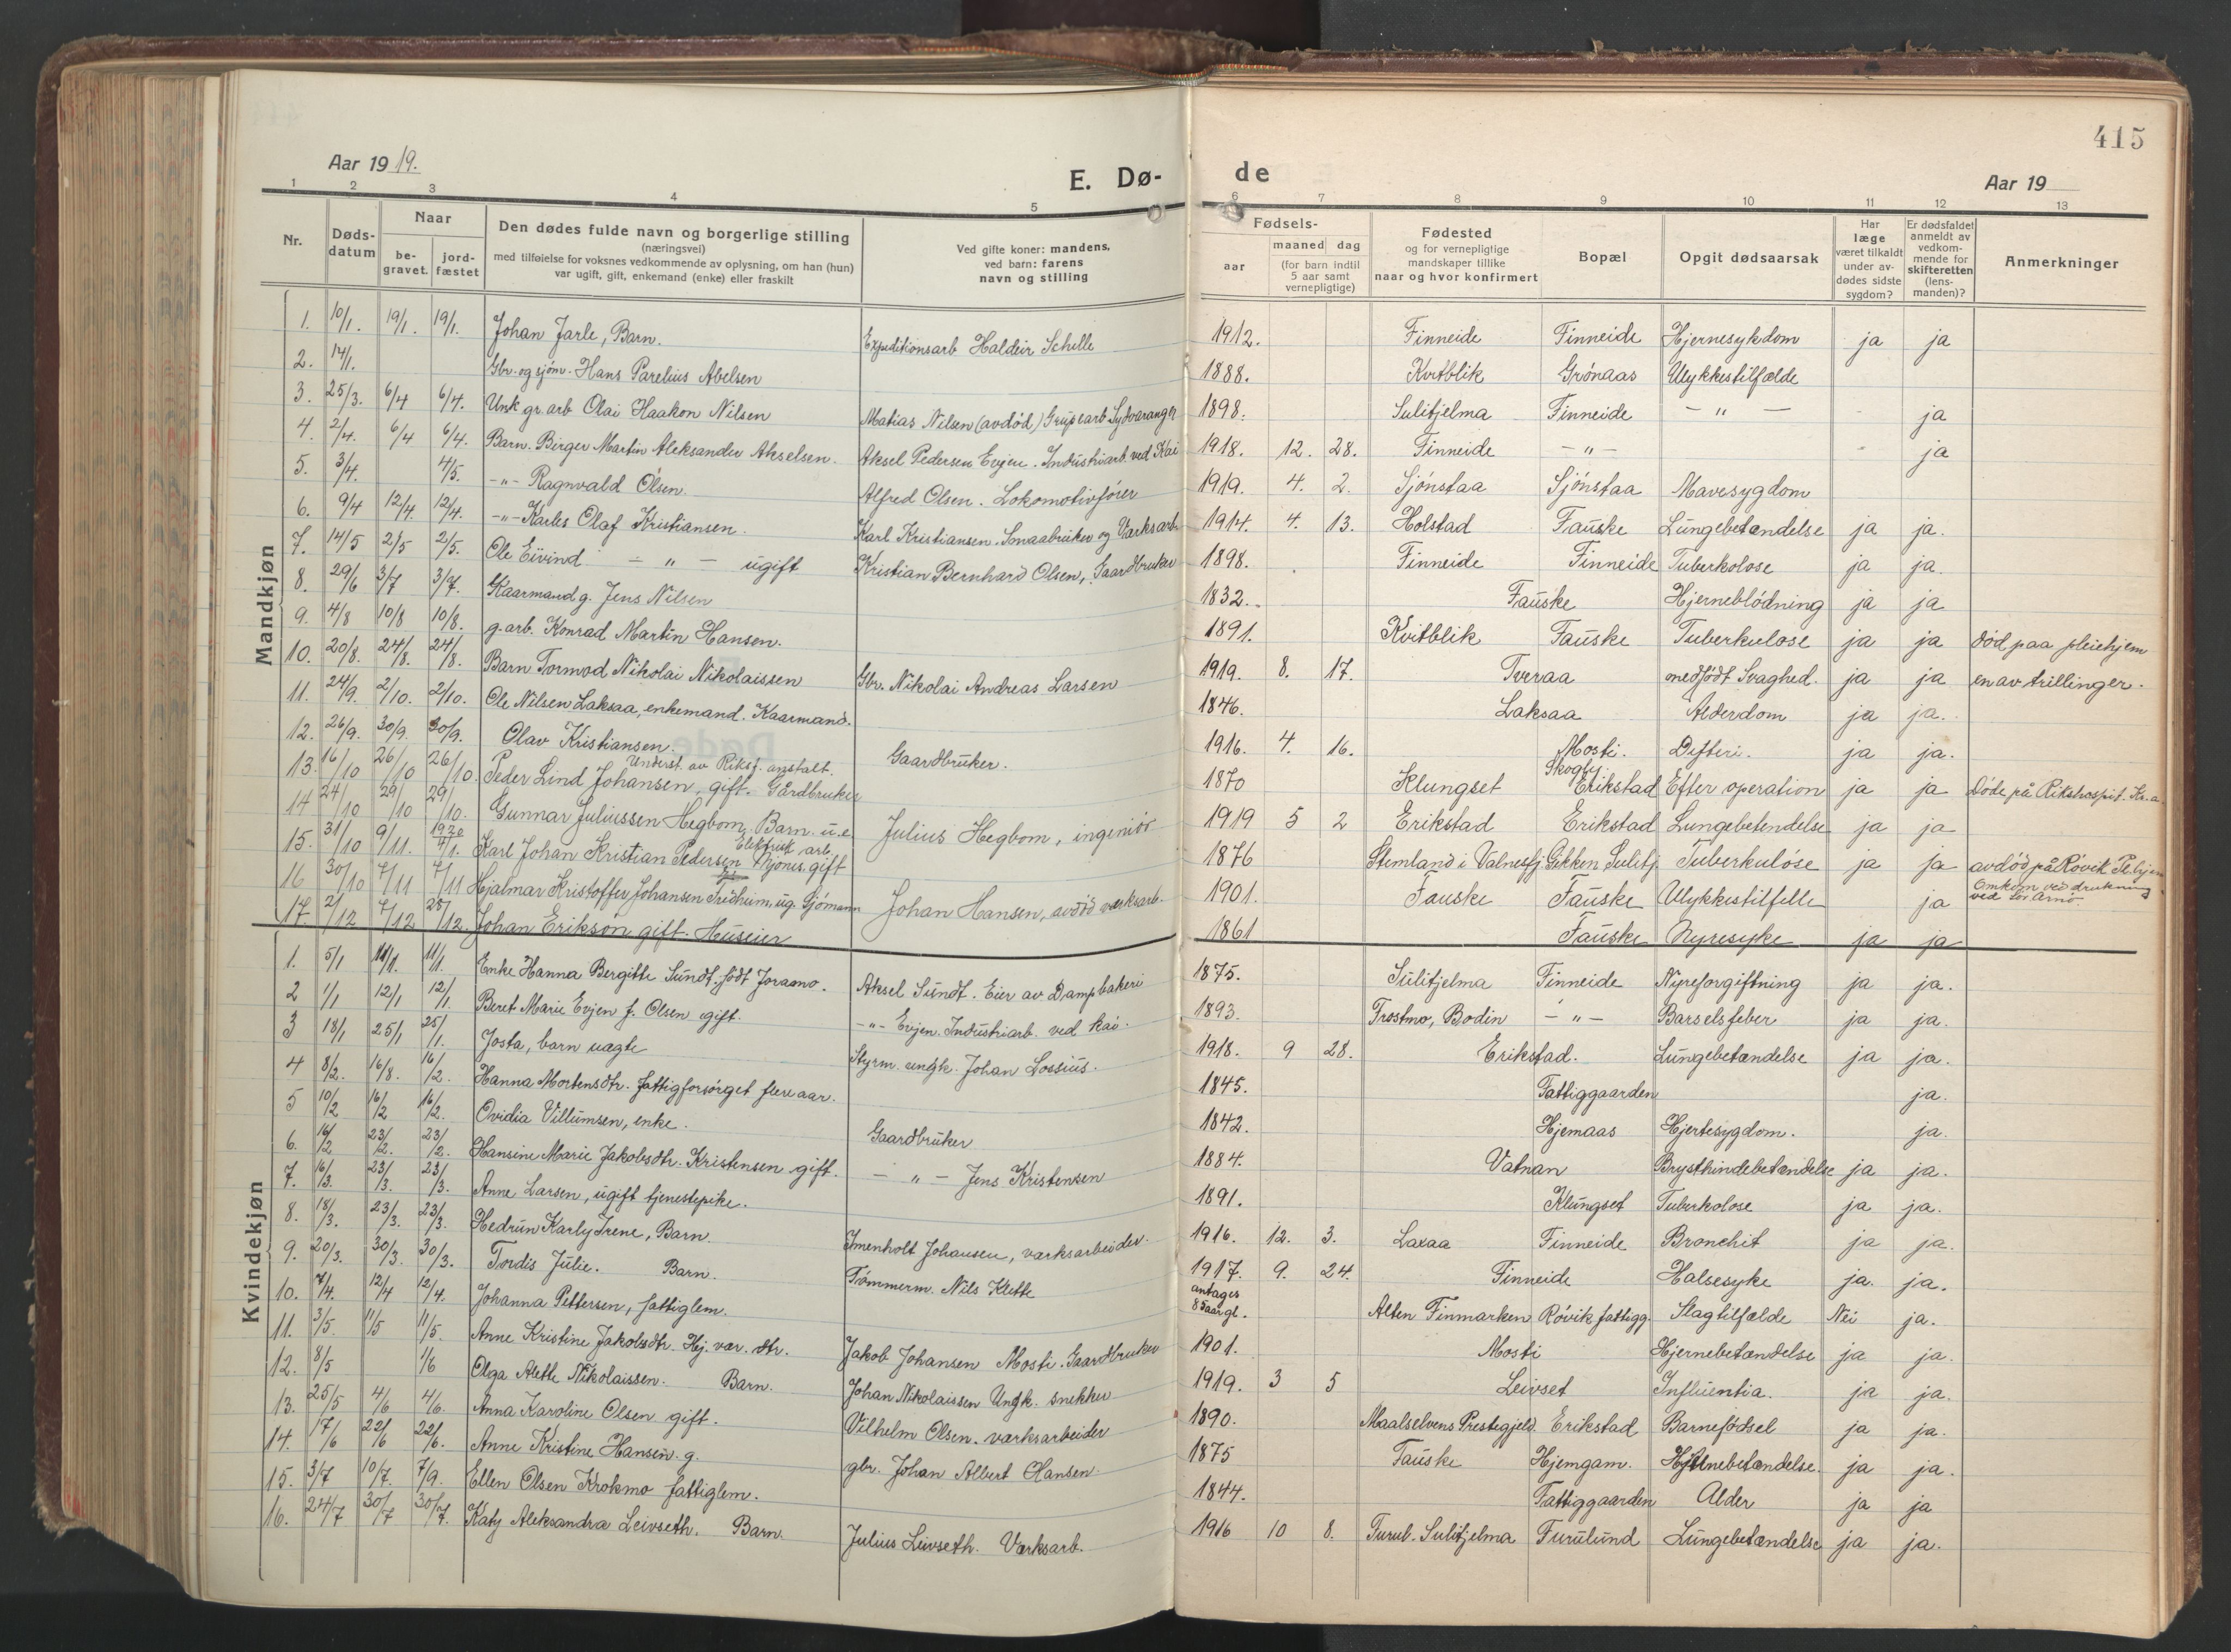 415
Aar 1919.
E. Dø-
de
Aar 19
1 2 3 4 5 6 7 8 9 10 11 12 13
Nr.
Døds-
datum
Naar
be-
gravet.
jord-
fæstet
Den dødes fulde navn og borgerlige stilling
(næringsvei)
med tilføielse for voksnes vedkommende av oplysning, om han (hun)
var ugift, gift, enkemand (enke) eller fraskilt
Ved gifte koner: mandens,
ved barn: farens
navn og stilling
Fødsels-
aar
maaned dag
(for barn indtil
5 aar samt
vernepligtige)
Fødested
og for vernepligtige
mandskaper tillike
naar og hvor konfirmert
Bopæl
Opgit dødsaarsak
Har
læge
været tilkaldt
under av-
dødes sidste
sygdom?
Er dødsfaldet
anmeldt av
vedkom-
mende for
skifteretten
(lens-
manden)?
Anmerkninger
Mandkjøn
1. 10/1. 19/1. 19/1. Johan Jarle, Barn. Expeditionsarb Haldeir Schelle 1912. Finneide Finneide Hjernesykdom ja ja
2. 14/1. Gbr. og sjøm. Hans Parelius Abelsen 1888. Kvitblik Grønaas Ulykkestilfælde
3. 25/3. 6/4 6/4. Unk. gr. arb Olai Haakon Nilsen Matias Nilsen (avdød) Grupearb Sydvaranger 1898. Sulitjelma Finneide - " - ja
4. 2/4. 6/4 6/4. Barn. Birger Martin Aleksander Akselsen. Aksel Pedersen Evjen. Industriarb. ved Kai 1918. 12. 28. Finneide - " - ja
5. 3/4. 4/5. - " - Ragnvald Olsen. Alfred Olsen. Lokomotivfører 1919. 4. 2. Sjønstaa Sjønstaa Mavesygdom
6. 9/4 12/4. 12/4. - " - Karles Olaf Kristiansen. Karl Kristiansen. Smaabruker og Værksarb 1914. 4. 13. Holstad Fauske Lungebetændelse ja ja.
7. 14/5 2/5 2/5. Ole Eivind - " - ugift Kristian Bernhard Olsen, Gaardbruker 1898. Finneide Finneide Tuberkolose ja ja.
8. 29/6 3/7 3/7. Kaarmand g. Jens Nilsen 1832. Fauske Hjerneblødning ja ja
9. 4/8 10/8 10/8. g. arb. Konrad Martin Hansen. 1891. Kvitblik Fauske Tuberkulose ja ja død paa pleiehjem
10. 20/8. 24/8. 24/8. Barn Tormod Nikolai Nikolaissen Gbr. Nikolai Andreas Larsen 1919. 8. 17. Tveraa medfødt Svaghed. ja ja en av trillinger.
11. 24/9. 2/10. 2/10. Ole Nilsen Laksaa, enkemand. Kaarmand. 1846. Laksaa Alderdom ja ja.
12. 26/9. 30/9. 30/9. Olav Kristiansen. Gaardbruker. 1916. 4. 16. Mosti. Difteri. ja ja.
Underst. av Riksf. anstalt.
13. 16/10 26/10 26/10. Peder Lind Johansen, gift. Gårdbruker 1870 Klungset Skogly Erikstad Efter operation ja ja Døde på Rikshospit. Kr.a
14 24/10 29/10 29/10. Gunnar Juliussen Hegbom. Barn u.e. Julius Hegbom, ingeniör 1919 5 2 Erikstad Erikstad Lungebetendelse ja ja
15. 31/10 9/11. 1920 4/1. Karl Johan Kristian Pedersen Elektrisk arb. Mjønes. gift 1876 Stemland i Valnesfj. Gikken Sulitj. Tuberkuløse ja ja avdød på Røvik Pl.hjem
16 30/10 7/11 7/11 Hjalmar Kristoffer Johansen Fridhum, ug. Sjømann Johan Hansen, avdød værksarb. 1901. Fauske Fauske Ulykkestilfelle ja Omkom ved drukning
17 2/12 7/12 28/12. Johan Erikson gift. Huseier 1861 Fauske Nyresyke ja ja
Kvindekjøn
1. 5/1 11/1. 11/1. Enke Hanna Bergitte Sundt, født Joramo. Aksel Sundt. Eier av Dampbakeri 1875. Sulitjelma Finneide Nyreforgiftning ja ja.
2 1/1 12/1 12/1. Beret Marie Evjen f. Olsen gift. - " - Evjen. Industriarb. ved kai. 1893. Trostmo, Bodin - " - Barselsfeber ja ja.
3 18/1 25/1 25/1. Josta, barn uægte Styrm. ungk. Johan Lossius. 1918. 9 28. Erikstad. Lungebetændelse ja ja.
4 8/2. 16/8. 16/2. Hanna Mortensdtr. fattigforsørget flere aar. 1845. Fattiggaarden ja.
5 10/2 16/2 16/2. Ovidia Villumsen, enke. Gaardbruker 1842. Hjemaas Hjertesygdom. ja.
6. 16/2 23/2. 23/2. Hansine Marie Jakobsdtr. Kristensen gift. - " - Jens Kristensen 1884. Vatnan Brysthindebetændelse ja ja.
7. 16/3. 23/3. 23/3. Anne Larsen, ugift tjenestepike. 1891. Klungset Tuberkolose ja ja.
8. 18/3. 23/3. 23/3. Hedrun Karly Irene, Barn. Imenholt Johansen, værksarbeider. 1916. 12. 3. Laxaa Finneide Bronchit ja ja.
9. 20/3. 30/3. 30/3. Tordis Julie. Barn. Tømmerm. Nils Klette 1917. 9. 24. Finneide Halsesyke ja. ja.
10. 7/4. 12/4 12/4. Johanna Pettersen, fattiglem. antages 85aar gl. Alten Finmarken Røvik fattigg. Slagtilfælde Nei ja.
11. 3/5. 11/5 11/5. Anne Kristine Jakobsdtr. Hj. vær. dtr. Jakob Johansen Mosti. Gaardbruker 1901. Mosti Hjernebetændelse ja ja.
12. 8/5 1/6 Olga Alette Nikolaissen. Barn. Johan Nikolaissen Ungk. snekker 1919. 3 5 Leivset Influentia. ja ja.
13. 25/5 4/6 4/6. Anna Karoline Olsen gift. Vilhelm Olsen. værksarbeider 1890. Maalselvens Prestegjeld. Erikstad Barnefødsel ja ja.
14. 17/6 22/6 22/6. Anne Kristine Hansen. g. gbr. Johan Albert Hansen. 1875 Fauske Hjemgam. Hjernebetændelse. ja ja.
15. 3/7 10/7. 7/9. Ellen Olsen Krokmo fattiglem. 1844. Fattiggaarden Alder ja ja
16. 24/7 30/7 30/7. Katy Aleksandra Leivseth. Barn. Julius Leivseth. Værksarb. 1916 10 8. Furul. Sulitjelma Furulund Lungebetændelse ja ja.